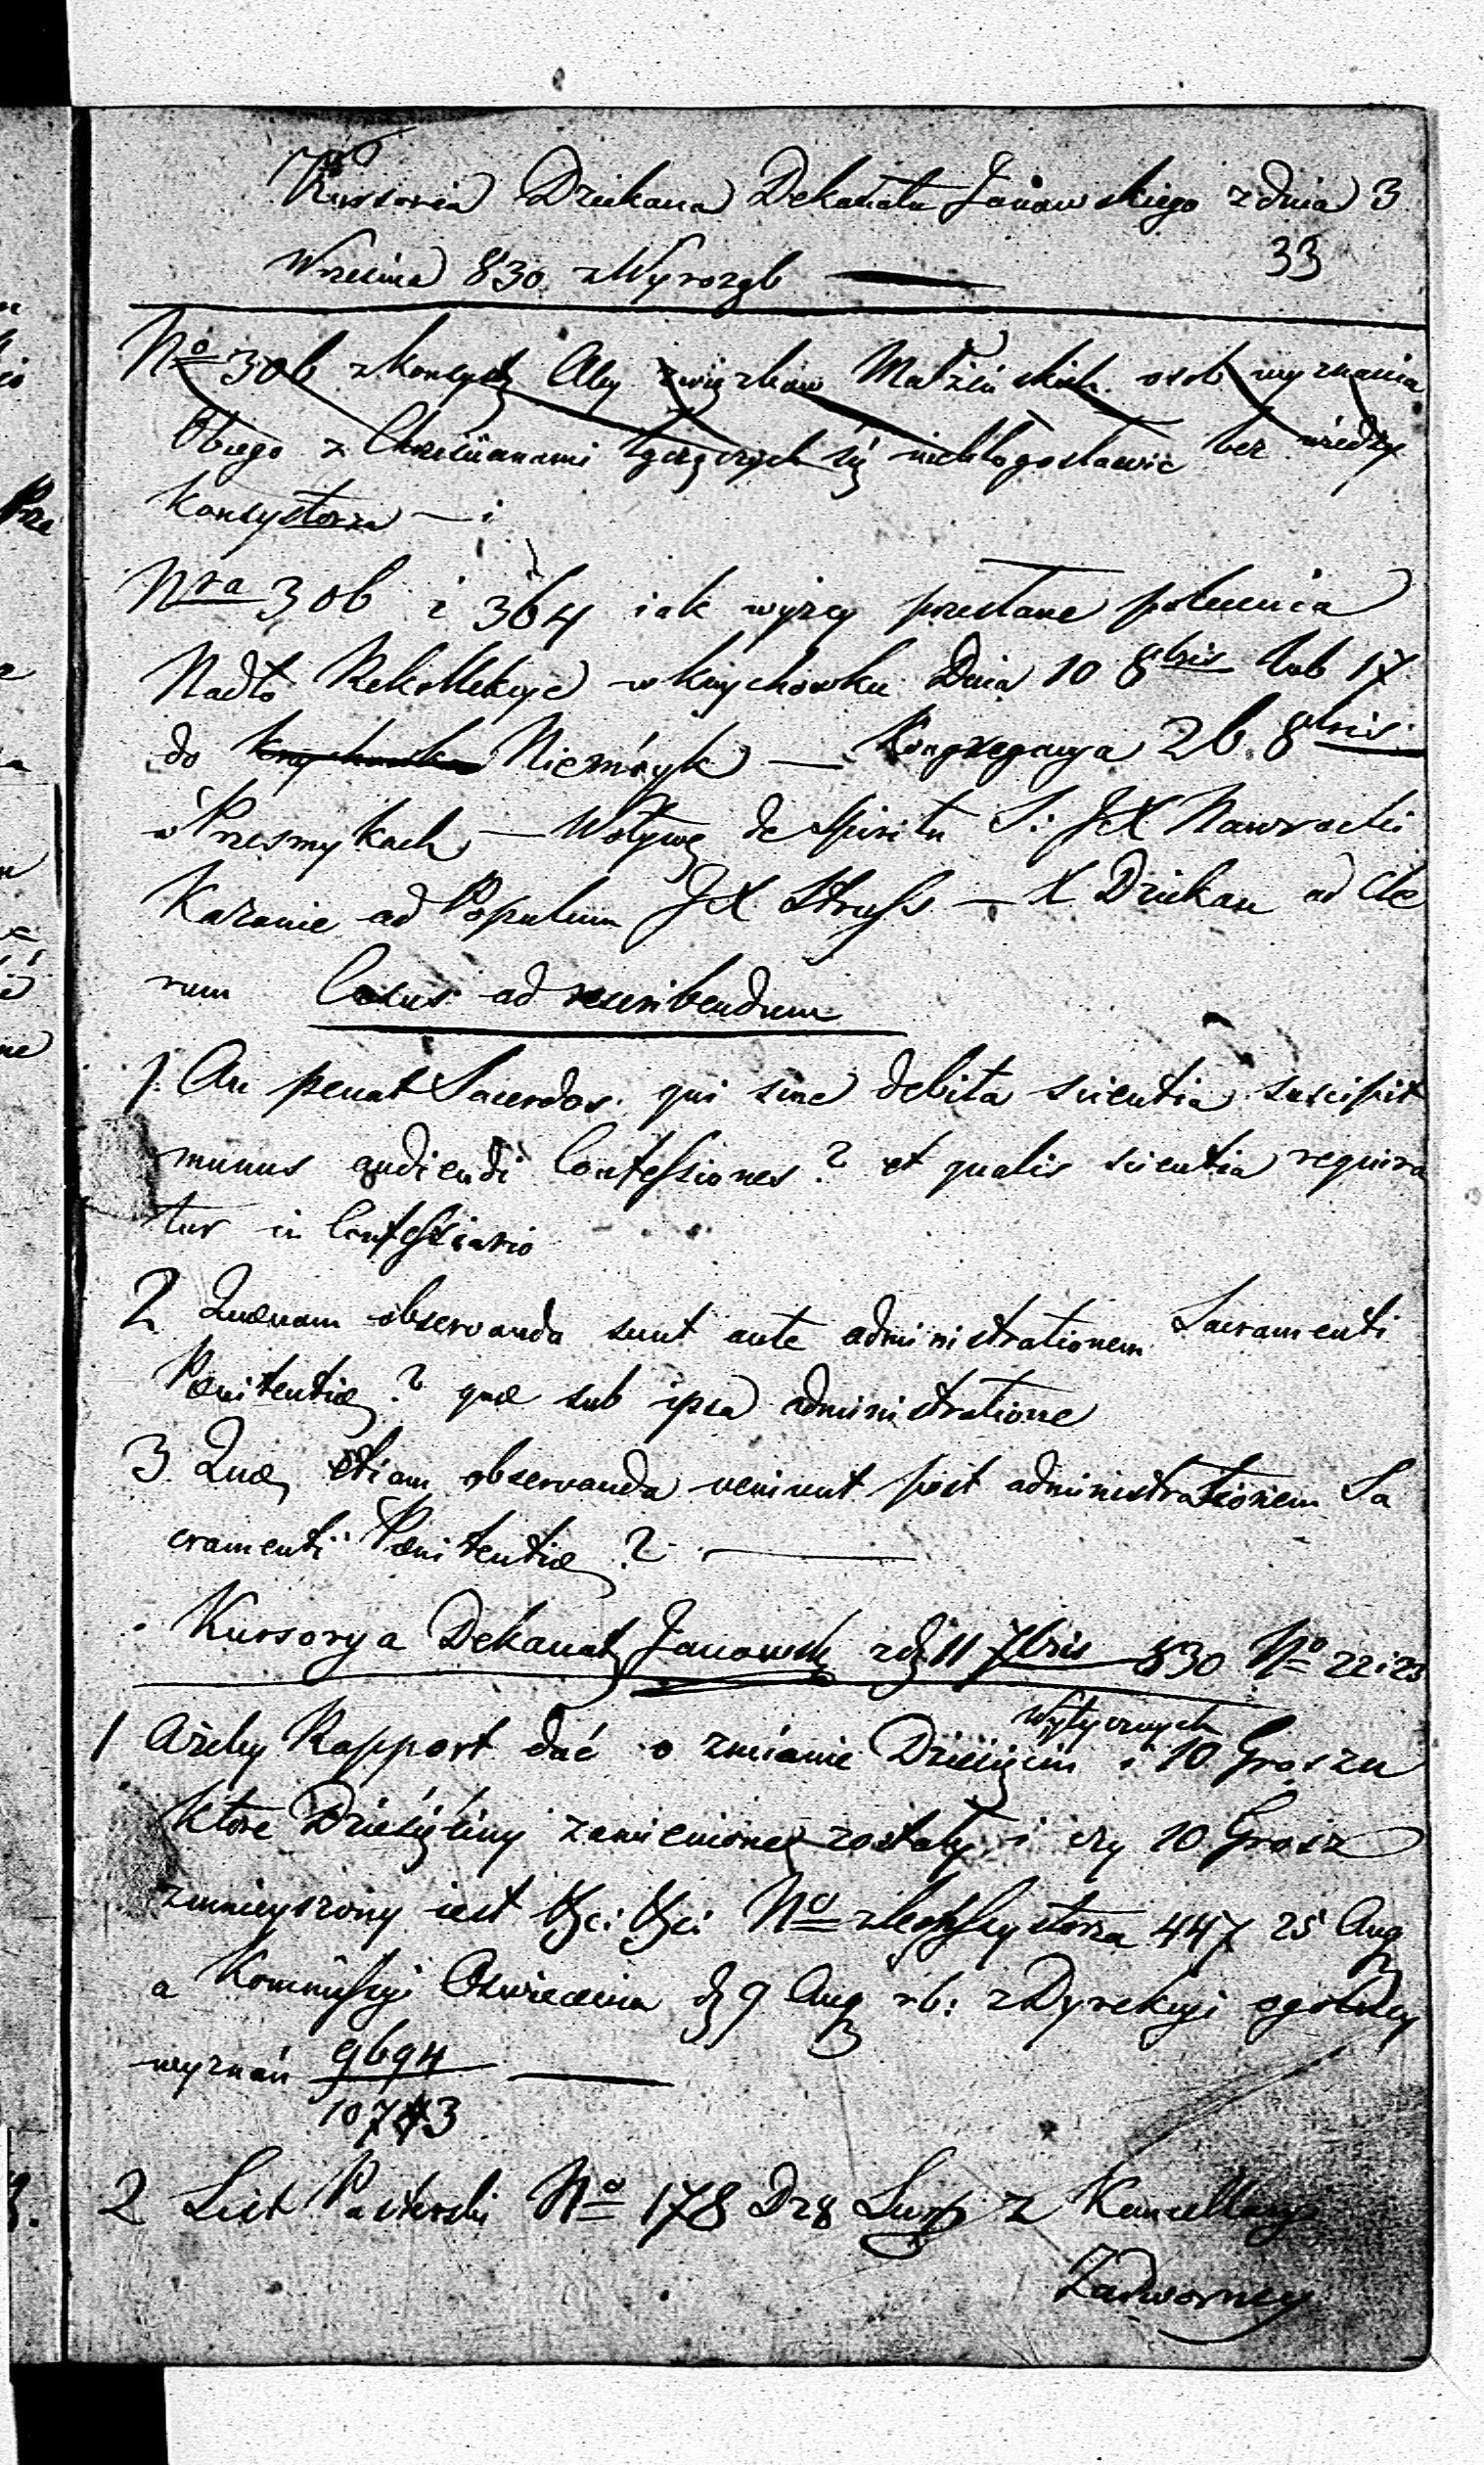 Kursoria Dziekana Dekanatu Janowskiego z dnia 3
Września 830 z Wyrozęb
33
No 306 z konsyst Aby związków Małżeńskich osob wyznania
Obcego z Chrześcianami łączących się niebłogosławić bez wiedzy
Konsystorza — i
Nra 306 i 364 iak wyżey przesłane polecenia
Nadto Rekollekcye w Knychowku Dnia 10 8bris lub 17
do Knychowka Niemóyk — Kongregacya 26 8bris
w Przesmykach — Wotywę de Spiritu S: JX Nawrocki
Kazanie ad Populum JX Struss — X Dziekan ad Cle
rum Casus ad rescribendum
1. An peccat Sacerdos qui sine debita scientia suscipit
munus audiendi Confessiones? et qualis scientia requira
tur in Confessario
2 Quænam observanda sunt ante administrationem Sacramenti
Pænitentiæ? quæ sub ipsa administratione
3. Quæ etiam observanda veniunt post administrationem Sa
cramenti Pænitentiæ? —
Kursorya Dekanat Janowsk z d 11 7bris 830 No 22 i 23
wytycznych
1 Ażeby Rapport dać o zmianie Dziesięcin i 10 Groszu
Które Dziesięciny zamienione zostały i czy 10 Grosz
zmnieyszony iest No z konsystorza 447 25 Aug
a Kommissyi Oświecenia d 9 Aug rb: z Dyrekcyi ogolney
wyznań 9694 —
10743
2 List Pasterski No 178 z Kancellaryi
Zadworney